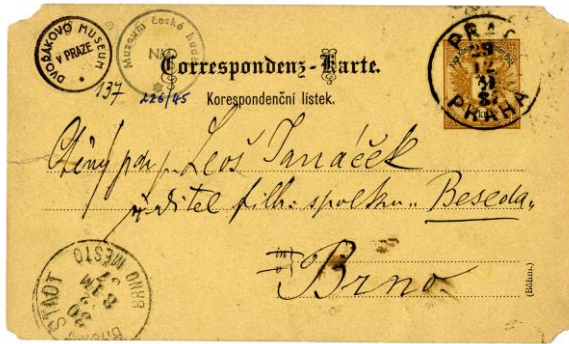 DVOŘÁKOVO MUSEUM V PRAZE
Muzeum české hudby NM
137
226/45
Correspondenz-Karte.
Korespondenční lístek.
PRAG
PRAHA
Ctěný pán p. Leoš Janáček
ředitel filh. spolku „Beseda„
in
v
Brno
(Böhm.)
BRÜNN STADT
BRNO MĚSTO